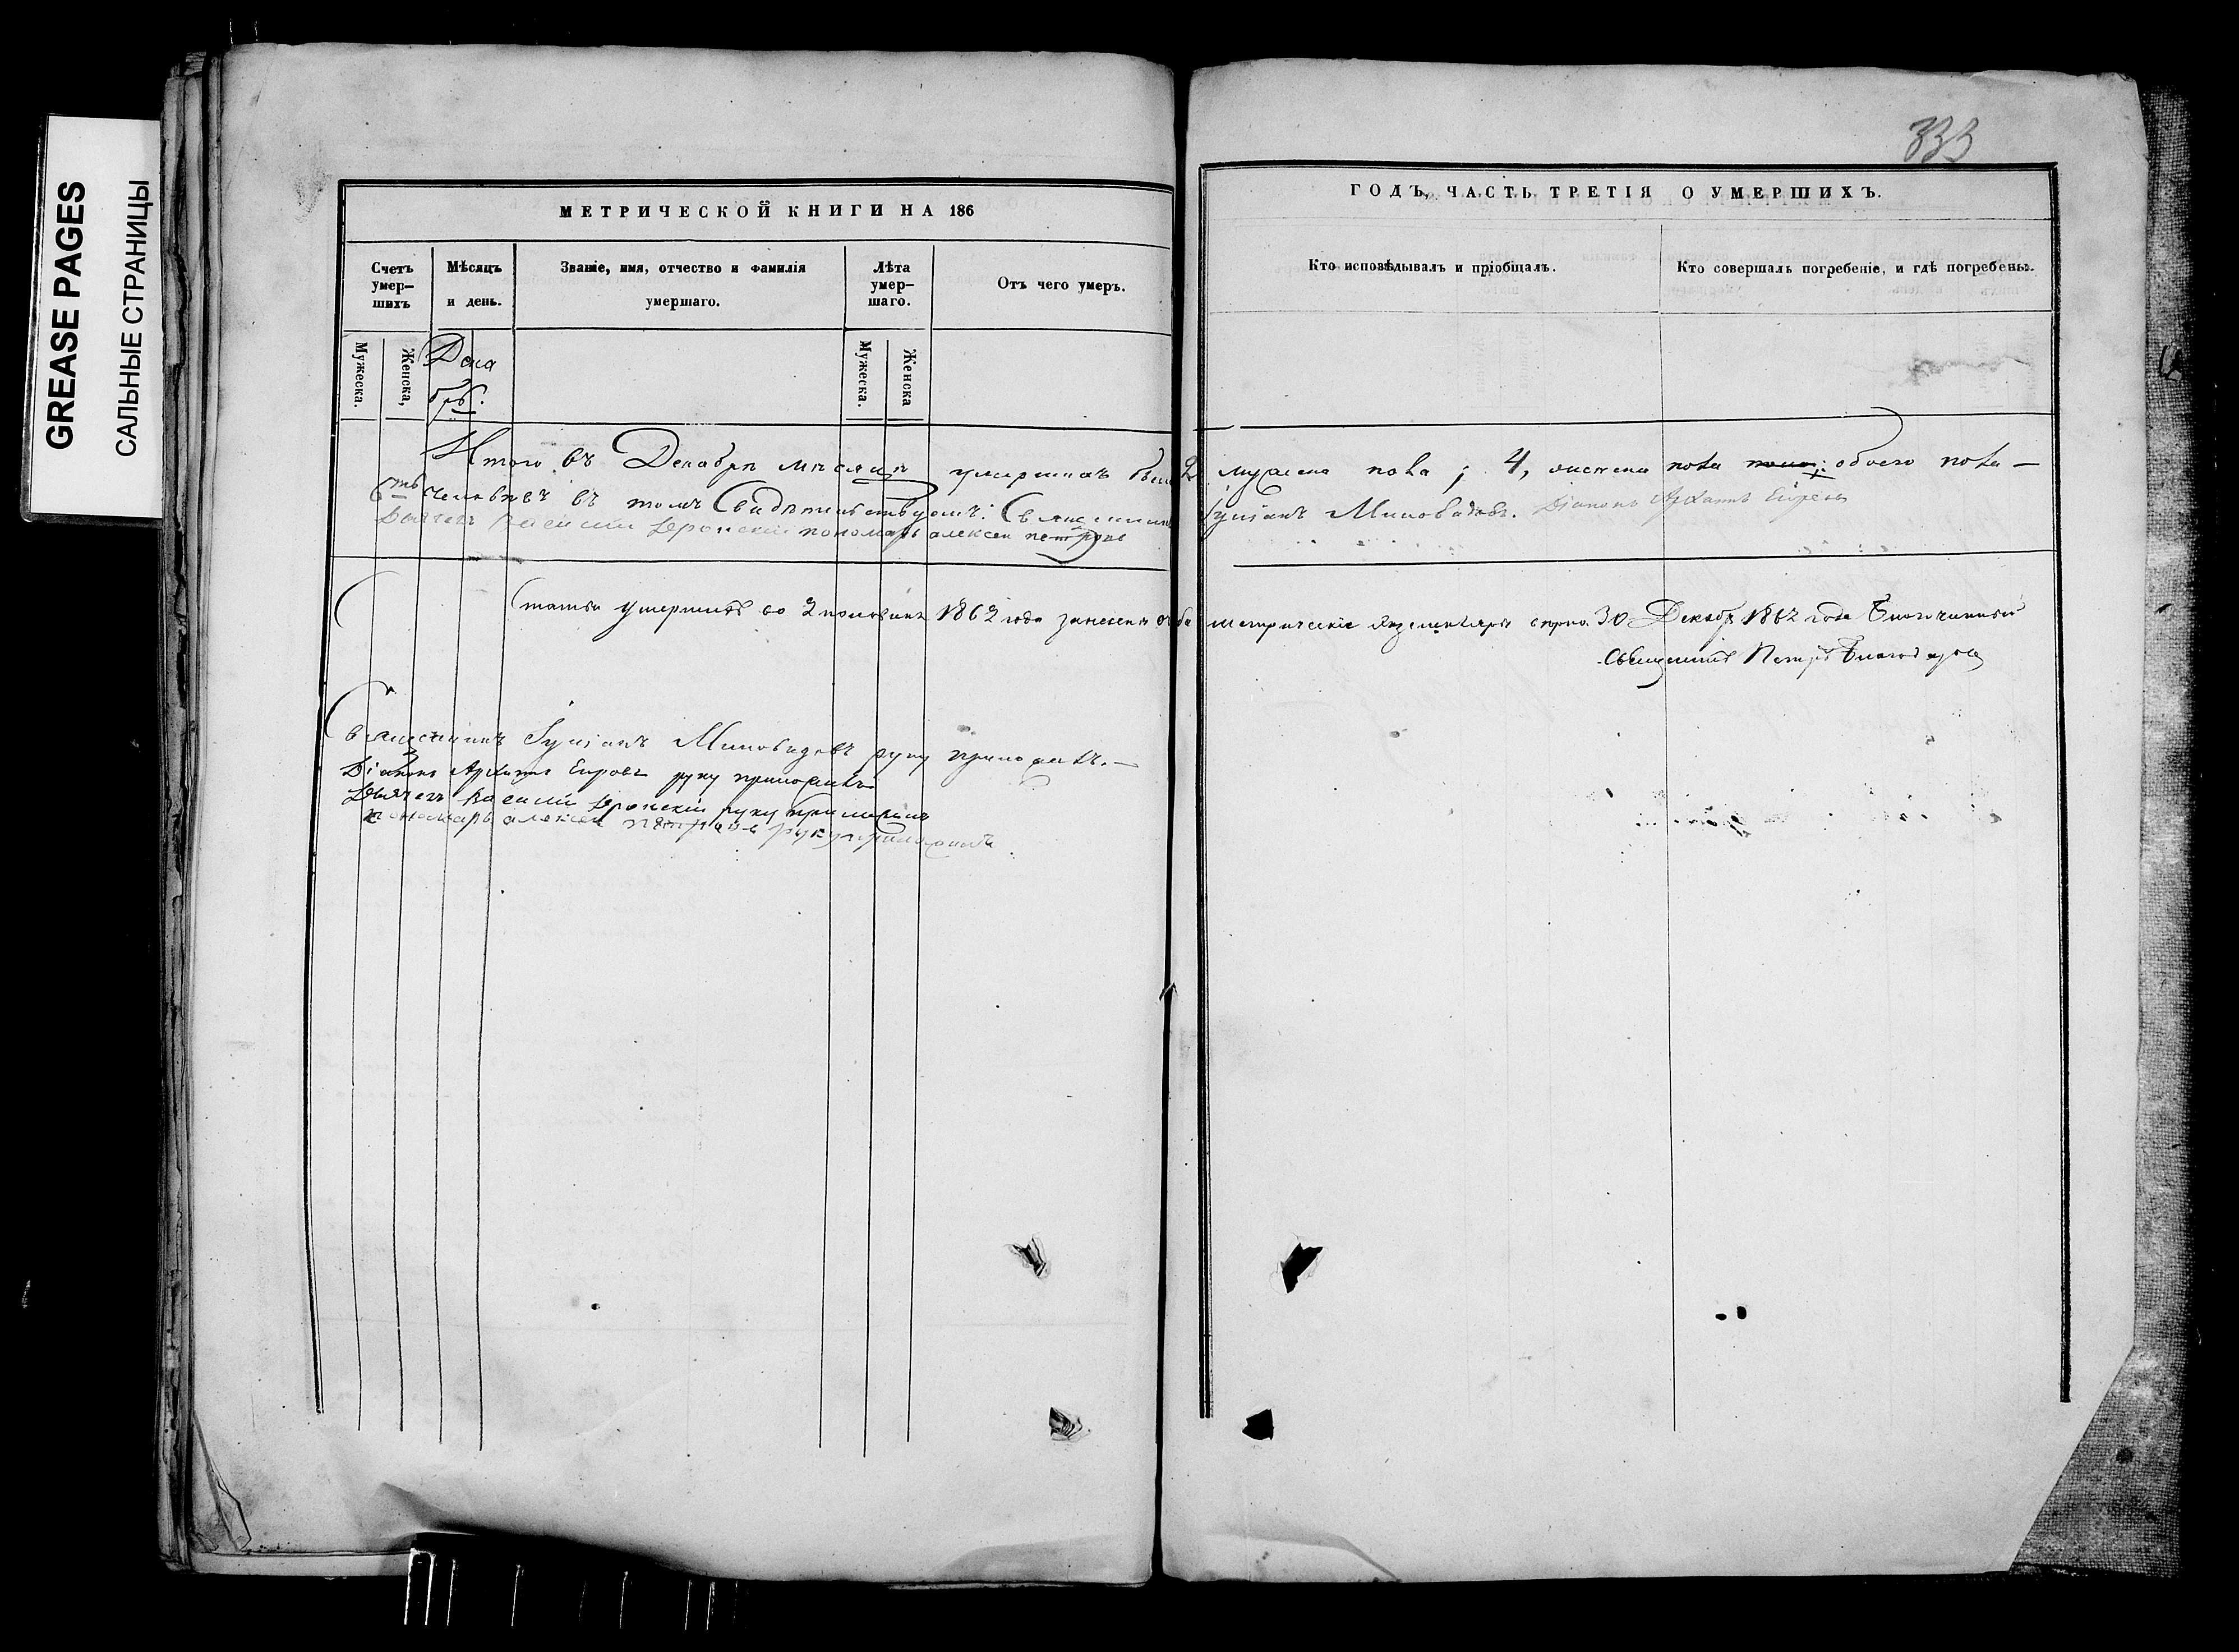 GREASE PAGES
САЛЬНЫЕ СТРАНИЦЫ
333
МЕТРИЧЕСКОЙ КНИГИ НА 186
ГОДЪ, ЧАСТЬ ТРЕТІЯ О УМЕРШИХЪ.
Счетъ умер–шихъ
Мѣсяцъ и день.
Званіе, имя, отчество и фамилія умершаго.
Лѣта умер–шаго.
Отъ чего умеръ.
Кто исповѣдывалъ и пріобщалъ.
Кто совершалъ погребеніе, и гдѣ погребены.
Мужеска.
Женска,
Дека
брь.
Мужеска.
Женска
Итого въ Декабрѣ мѣсяцѣ умершихъ было 2 мужеска пола; 4, женска пола обоего пола —
человѣкъ въ томъ Свидѣтельствуемъ: Священникъ Іуліанъ Миловидовъ. Діаконъ
Дьячекъ Василій пономарь алексей петровъ
Статьи умершихъ во 2 половинѣ 1862 года занесены въ оба метрическіе экземпляры верно. 30 Декабр 1862 года Благочинный
Священникъ Петръ
Священникъ Іуліанъ Миловидовъ руку приложилъ. —
Діаконъ руку приложилъ
Дьячекъ Василій руку приложилъ
пономарь алексей петровъ руку приложилъ